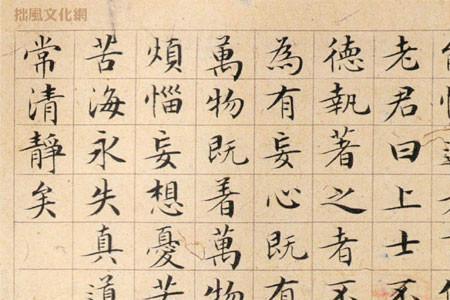 拙風文化網
老君曰上士不
德執著之者不
為有妄心既有
萬物既着萬物
煩惱妄想憂苦
苦海永失真道
常清靜矣